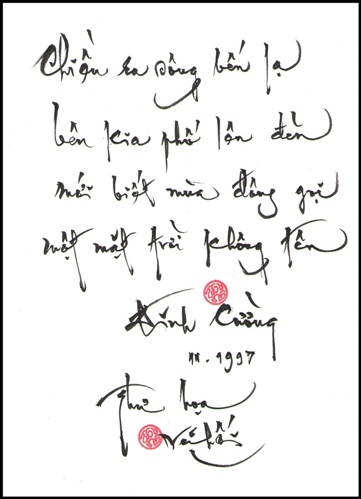 Chiều ra sông bến lạ
bên kia phố lên đèn
mới biết mùa đông gọi
một mặt trời không tên
Đinh Cường
11.1997
Thư họa
Vũ Hối